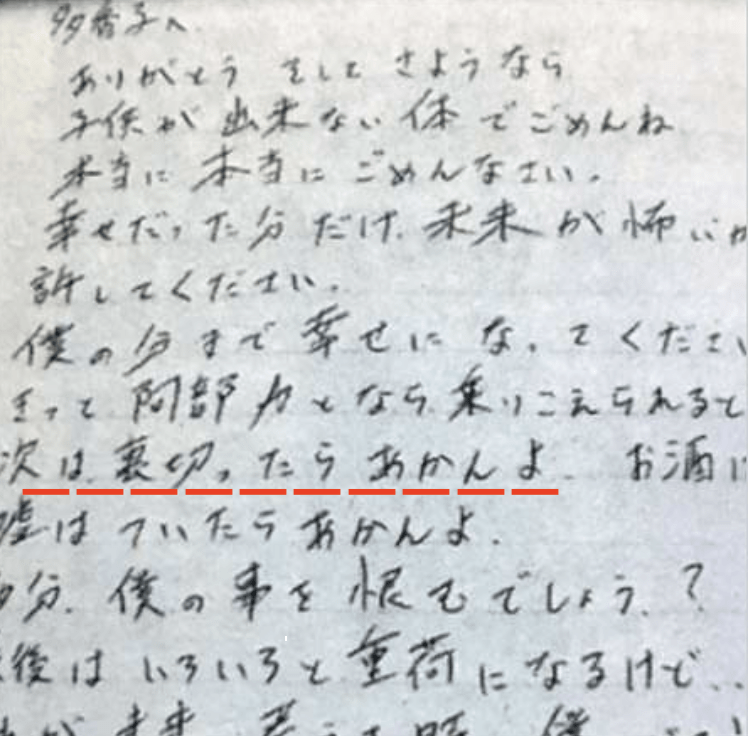 多香子へ
ありがとう そして さようなら
子供が 出来ない 体 でごめんね
本当に 本当に ごめんなさい.
幸せだった分だけ 未来が怖いか
許してください.
僕の分まで 幸せに なってください
きっと 阿部力となら 乗りこえられると
次は 裏切ったら あかんよ. お酒に
嘘は ついたら あかんよ.
多分. 僕の事を 恨むでしょう.?
後は いろいろと 重荷になるけど...
未来